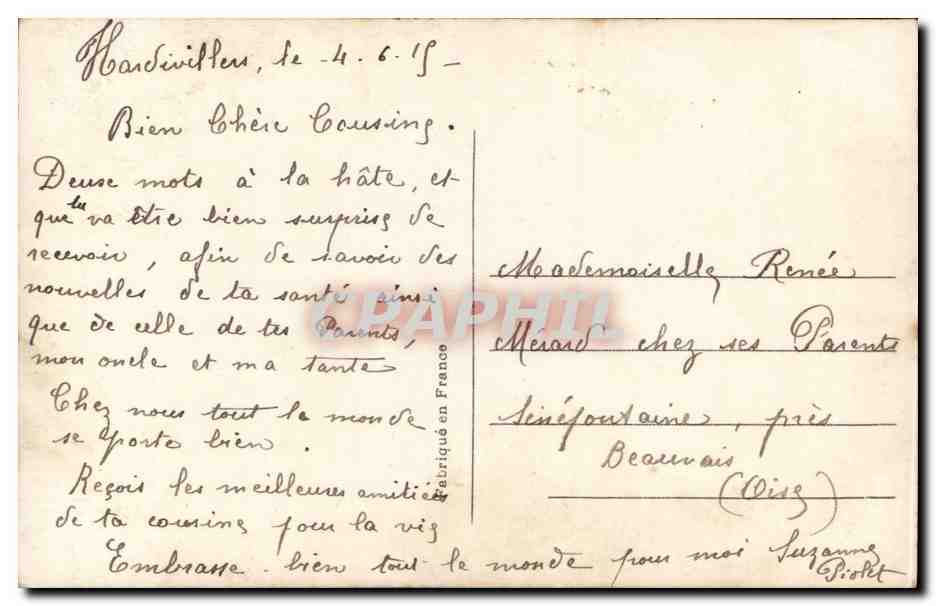 Hardivillers, le -4-6-15-
Bien Chère Cousine.
Deuxe mots à la hâte, et
que tu va être bien surprise de
recevoir, afin de savoir des
nouvelles de ta santé ainsi
que de celle de tes Parents,
mon oncle et ma tante
Chez nous tout le monde
se porte bien.
Reçois les meilleures amitiées
de ta cousine pour la vie
Embrasse bien tout le monde pour moi Suzanne
Piolet
Fabriqué en France
Mademoiselle Renée
Mérard chez ses Parents
Sénéfontaine, près
Beauvais
(Oise)
CPAPHIL